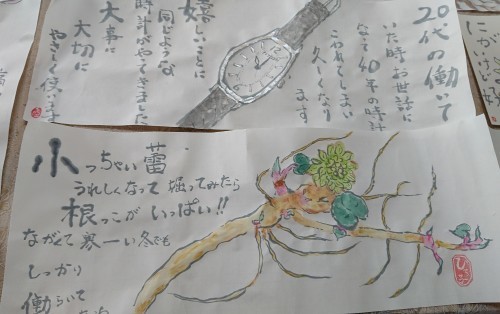 20代の働いて
いた時お世話に
なって40年の時計
こわれてしまい
久しくなり
ます
嬉しいことに
同じような
時計がやってきました
大事に
大切に
やさしく使います
小っちゃい蕾
うれしくなって掘ってみたら
根っこがいっぱい!!
ながくて寒ーい冬でも
しっかり
働らいて
にがい
けど